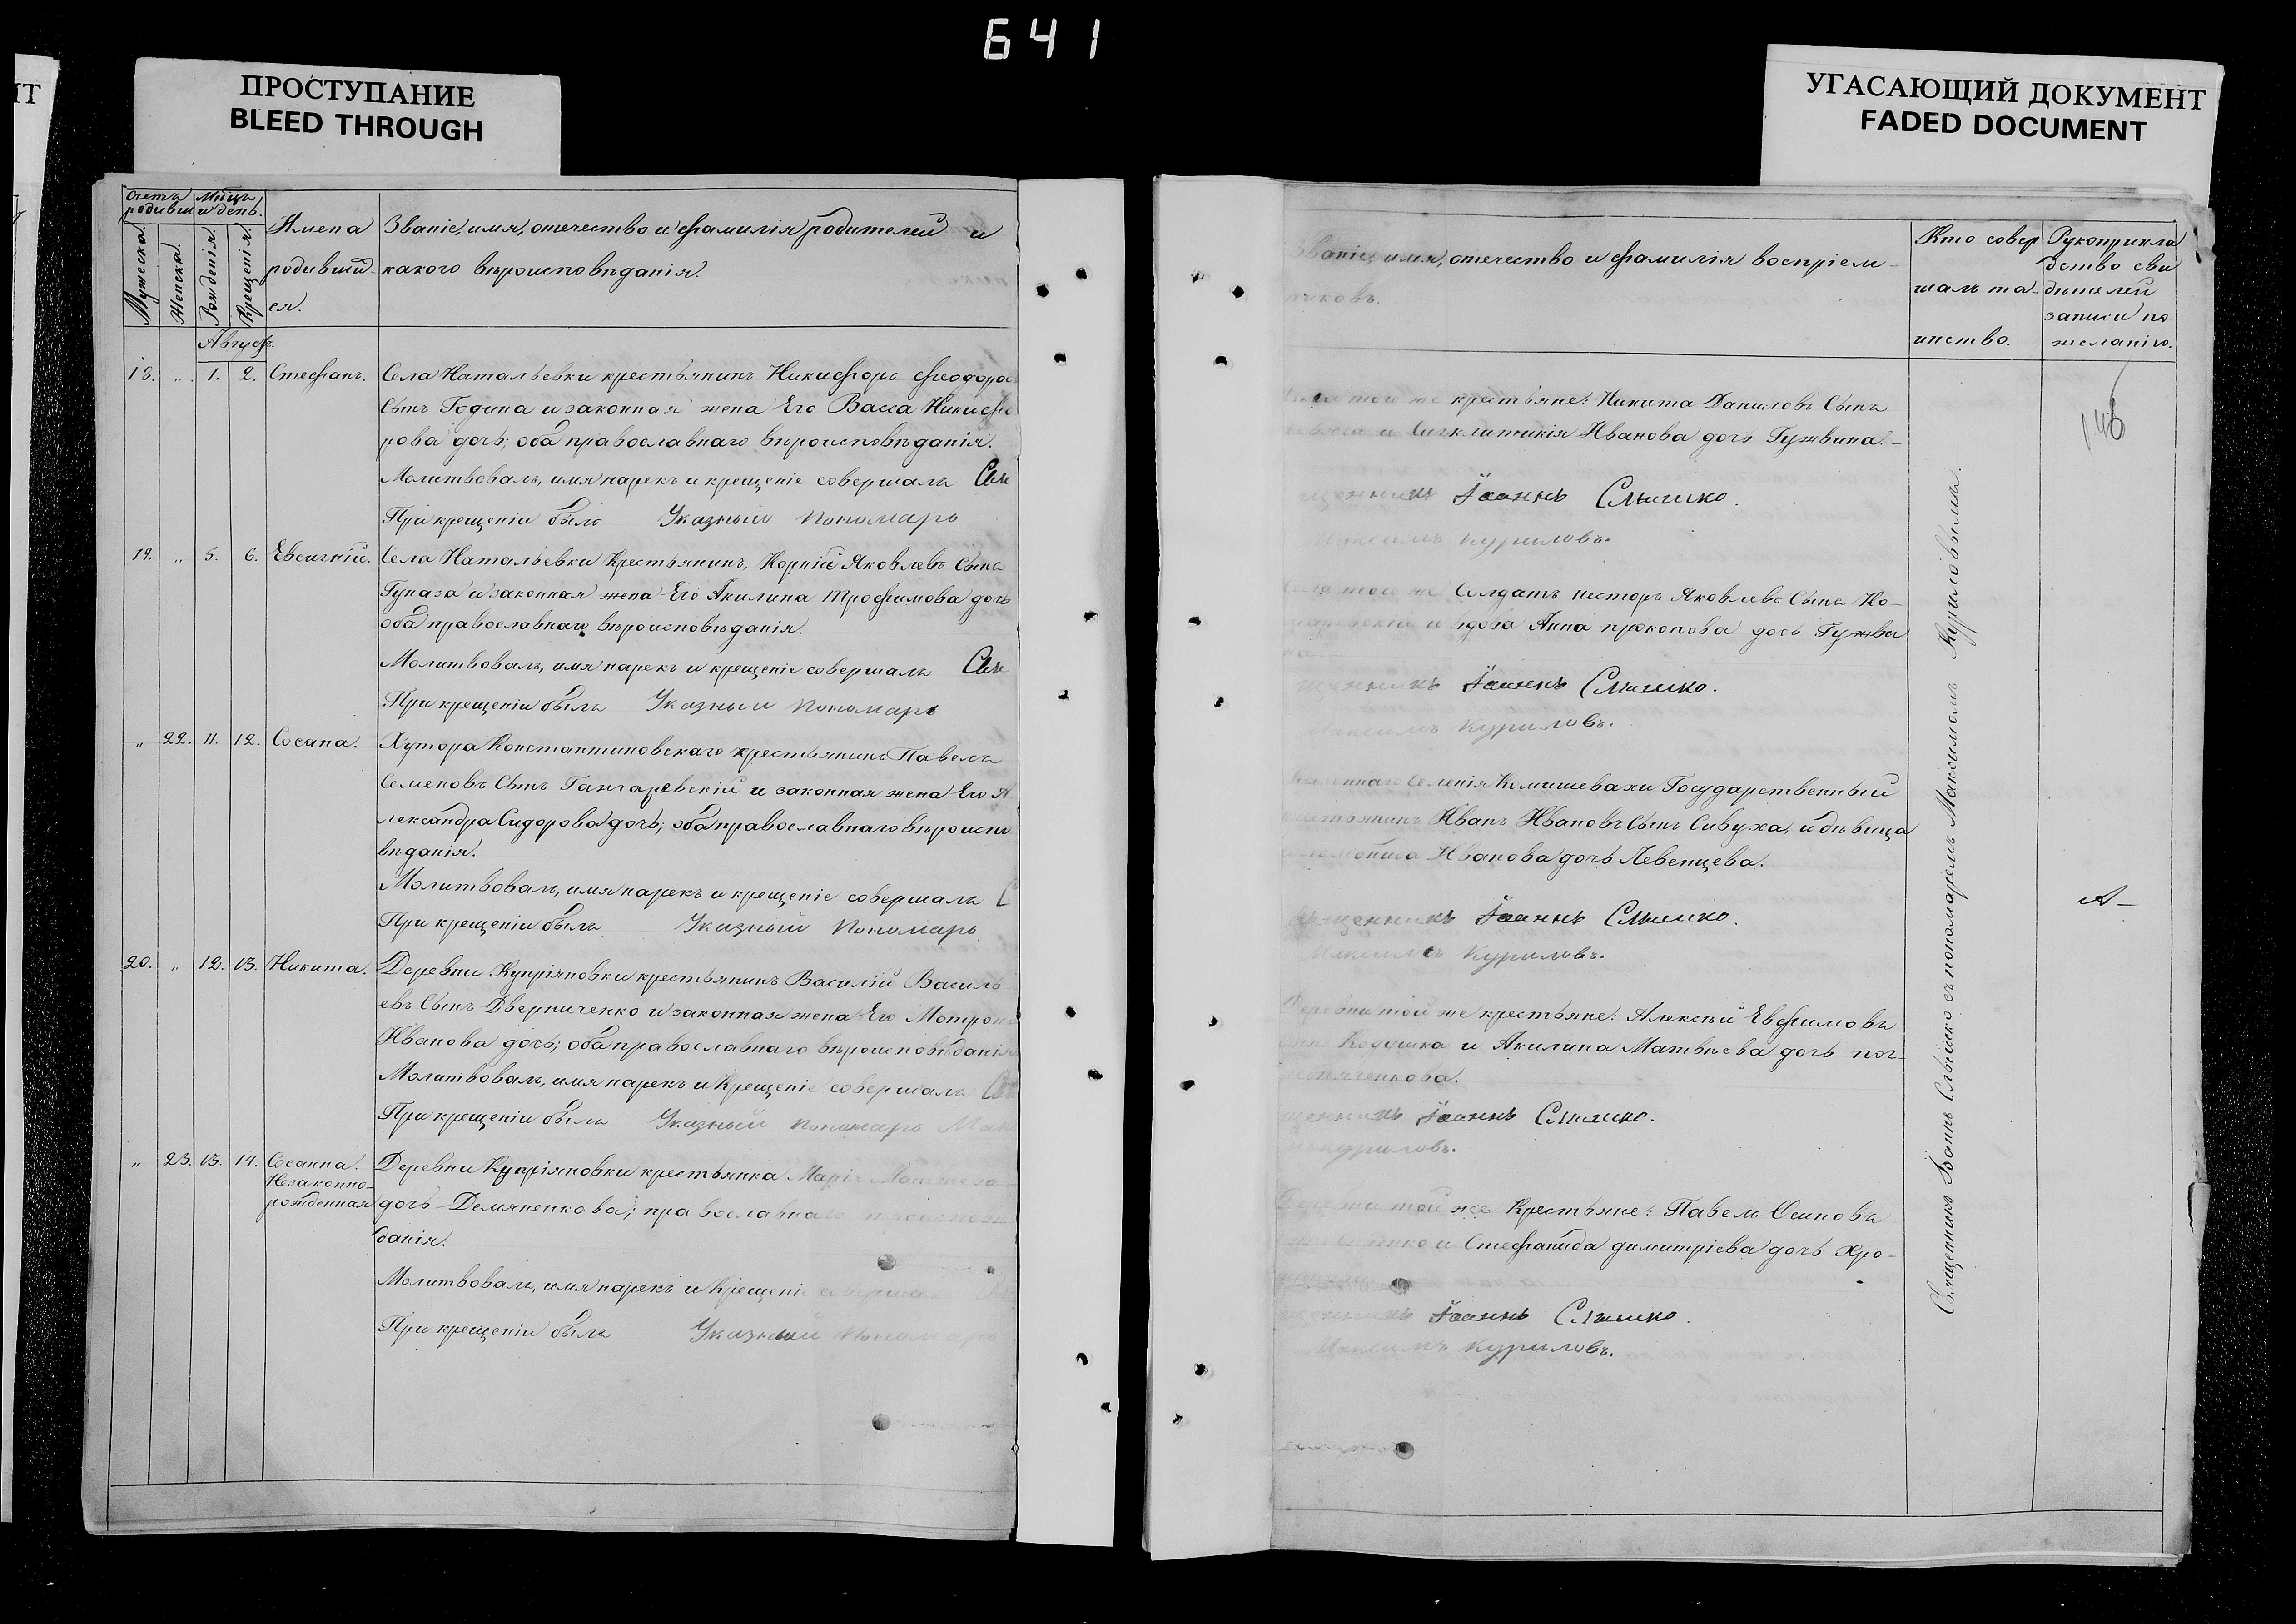 641
ПРОСТУПАНИЕ
BLEED THROUGH
УГАСАЮЩИЙ ДОКУМЕНТ
FADED DOCUMENT
Счетъ родивши
Мѣсцъ и день.
Мужеска.
Женска.
Рожденія.
Крещенія.
Имена
родивший-
ся.
Званіе, имя, отечество и фамилія родителей и
какого вѣроисповѣданія.
Август.
18. „ 1. 2. Стефанъ. Села Натальевки крестьянинъ Никифоръ Феодоров
Сынъ Година и законная жена Его Васса Никифо
рова дочь; оба православнаго вѣроисповѣданія.
Молитвовалъ, имя нарекъ и крещеніе совершалъ Свя
При крещеніи былъ Указный Пономарь
19. „ 5. 6. Евсигній. Села Натальевки Крестьянинъ, Корній Яковлевъ Сынъ
и законная жена Его Акилина Трофимова дочь
оба православнаго вѣроисповѣданія.
Молитвовалъ, имя нарекъ и крещеніе совершалъ Свя
При крещеніи былъ Указный Пономарь
„ 22. 11. 12. Сосана. Хутора Константиновскаго крестьянинъ Павелъ
Семеновъ Сынъ и законная жена Его А
лександра Сидорова дочь; оба православнаго вѣроиспо
вѣданія.
Молитвовалъ, имя нарекъ и крещеніе совершалъ С
При крещеніи былъ Указный Пономарь
20. „ 12. 13. Никита. Деревни Купріяновки крестьянинъ Василій Василь
евъ Сынъ Дверниченко и законная жена Его Мотрон
Иванова дочь; оба православнаго вѣроисповѣданія
Молитвовалъ, имя нарекъ и Крещеніе совершалъ Свя
При крещеніи былъ Указный Пономарь Мак
„ 23. 13. 14. Сосанна. Деревни Купріяновки крестьянка Марія
Незаконно-
рожденная дочь Демяненкова; православнаго
данія.
Молитвовалъ, имя нарекъ и Крещеніе
При крещеніи былъ Указный Пономарь
Званіе, имя, отечество и фамилія воспріем-
никовъ.
Кто совер
шалъ та-
инство.
Рукоприкла
дство сви
дѣтелей
записи по
желанію.
146
той же крестьяне: Никита Даниловъ Сынъ
и Сигклитикія Иванова дочь Гужвина.
Іоаннъ Слышко.
Максимъ Куриловъ.
Села той же Солдатъ Несторъ Яковлевъ Сынъ Ко-
и вдова Анна Прокопова дочь Гужви
на
Іоаннъ Слышко.
Максимъ Куриловъ.
Селенія Комишевахи Государственный
крестьянинъ Иванъ Ивановъ Сынъ Сивуха, и дѣвица
Иванова дочь Левенцева.
Священникъ Іоаннъ Слышко.
Максимъ Куриловъ.
Деревни той же крестьяне: Алексѣй Евфимовъ
и Акилина Матвѣева дочь
Іоаннъ Слышко.
Куриловъ.
Деревни той же Крестьяне: Павелъ Осиповъ
и Стефанида Димитріева дочь Хро-
Іоаннъ Слышко.
Максимъ Куриловъ.
Священникъ Іоаннъ Слышко съ пономаремъ Максимомъ Куриловымъ.